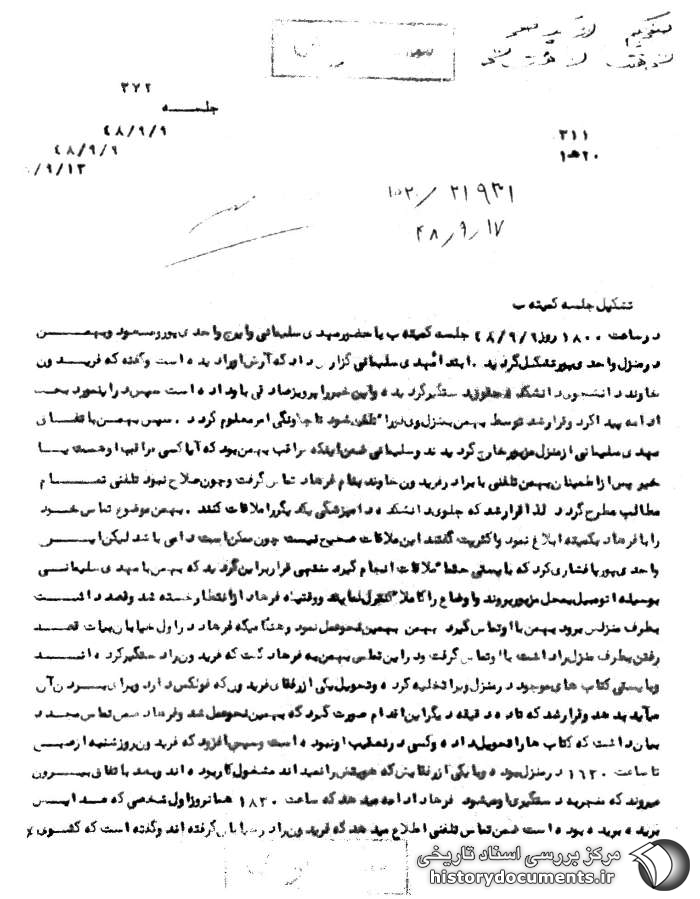 ۳۷۲
جلسه
۴۸/۹/۹
۴۸/۹/۹
/۹/۱۳
۳۱۱
۲۰ه۱
۲۱۹۳۱/
۴۸/۹/۱۷
تشکیل جلسه کمیته ب
در ساعت ۱۸۰۰ روز ۴۸/۹/۹ جلسه کمیته ب با حضور مهدی سلیمانی و ایرج واحدی پور و مسعود و بهمن
در منزل واحدی پور تشکیل گردید . ابتدا مهدی سلیمانی گزارش داد که آرش او را دیده است و گفته که فریدون
خاوند دانشجوی دانشکده دستگیر گردیده و این خبر را پرویز صادقی باو داده است سپس در اینمورد بحث
ادامه پیدا کرد و قرار شد توسط بهمن بمنزل وی فورا" تلفن شود تا چگونگی امر معلوم گردد . سپس بهمن باتفاق
مهدی سلیمانی از منزل مزبور خارج گردیدند و سلیمانی ضمن اینکه مراقب بهمن بود که آیا کسی مراقب او هست یا
خیر پس از اطمینان بهمن تلفنی با برادر فریدون خاوند بنام فرهاد تماس گرفت و چون صلاح نبود تلفنی تمام
مطالب مطرح گردد لذا قرار شد که جلوی دانشکده دامپزشگی یکدیگر را ملاقات کنند . بهمن موضوع تماس خود
را با فرهاد بکمیته ابلاغ نمود و اکثریت گفتند این ملاقات صحیح نیست چون ممکن است دامی باشد لیکن ایرج
واحدی پور پافشاری کرد که بایستی حتما" ملاقات انجام گیرد منتهی قرار بر این گردید که بهمن با مهدی سلیمانی
بوسیله اتومبیل بمحل مزبور بروند و اوضاع را کاملا" کنترل نمایند و وقتیکه فرهاد از انتظار خسته شد و قصد داشت
بطرف منزلش برود بهمن با او تماس گیرد بهمن بهمین نحو عمل نمود و هنگامیکه فرهاد در اول خیابان بیات قصد
رفتن بطرف منزل را داشت با او تماس گرفت و در این تماس بهمن به فرهاد گفت که فریدون را دستگیر کرده اند
و بایستی کتاب های موجود در منزل ویرا تخلیه کرده و تحویل یکی از رفقای فریدون که فولکس دارد و برای بردن آن
میآید بدهد و قرار شد که تا ده دقیقه دیگر این اقدام صورت گیرد که بهمین نحو عمل شد و فرهاد ضمن تماس مجدد
بیان داشت که کتاب ها را تحویل داده و کسی در تعقیب او نبوده است و سپس افزود که فریدون روز شنبه از صبح
تا ساعت ۱۶۳۰ در منزل بوده و با یکی از رفقایش که هویتش را نمیداند مشغول کار بوده اند و بعد باتفاق بیرون
میروند که منجر به دستگیری او میشود فرهاد ادامه میدهد که ساعت ۱۸۳۰ همانروز اول شخصی که صدایش
بریده بریده بوده است ضمن تماس تلفنی اطلاع میدهد که فریدون را در خیابان گرفته اند و گفته است که کشوی
مرکز بررسی اسناد تاریخی
historydocuments.ir